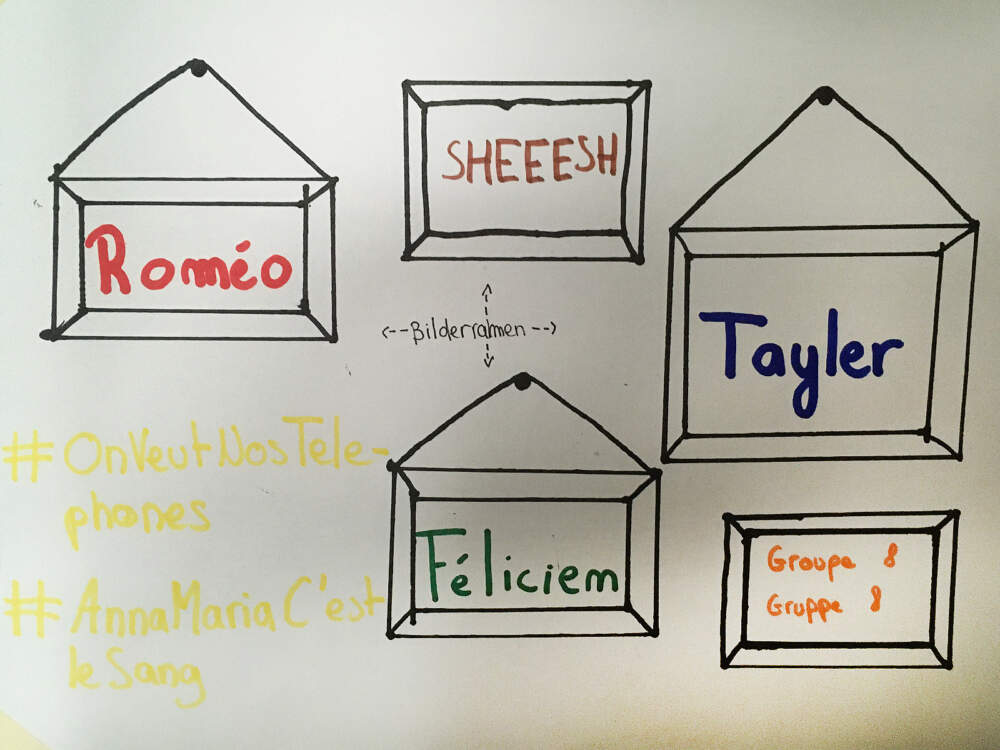 SHEEESH
Roméo
<--Bilderrahmen-->
Tayler
#OnVeutNosTele-
phones
Féliciem
Groupe 8
Gruppe 8
#AnnaMariaC'est
le Sang